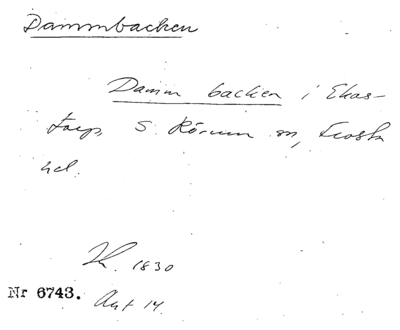 Dammbacken
Damm backen i Ekas-
torp, S. Rörum sn, Frosta
hd.
1830
Nr 6743. Akt 14.